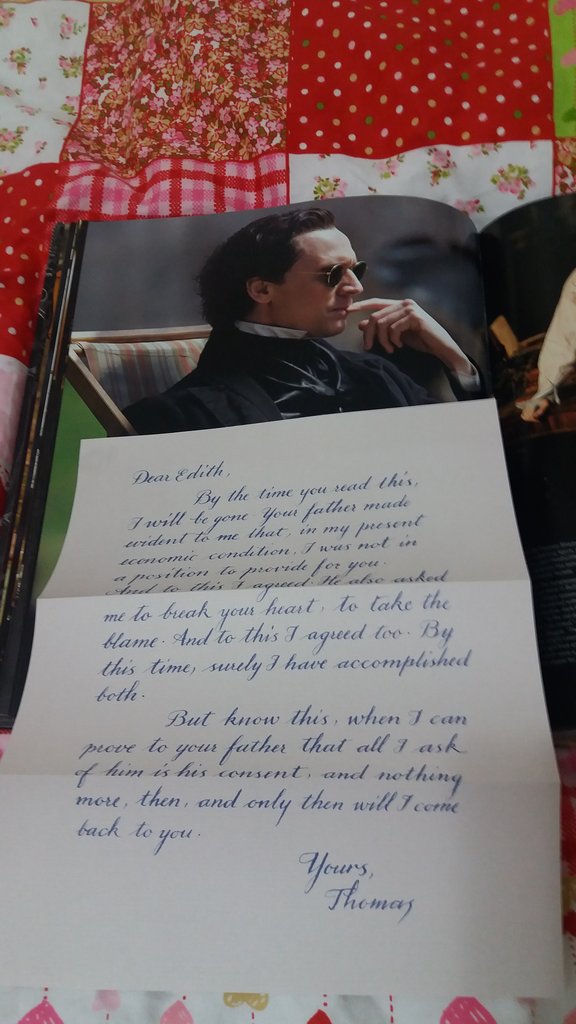 Dear Edith,
By the time you read this,
I will be gone. Your father made
evident to me that, in my present
economic condition, I was not in
a position to provide for you.
And to this I agreed. He also asked
me to break your heart, to take the
blame. And to this I agreed too. By
this time, surely I have accomplished
both.
But know this, when I can
prove to your father that all I ask
of him is his consent, and nothing
more, then, and only then will I come
back to you.
Yours,
Thomas